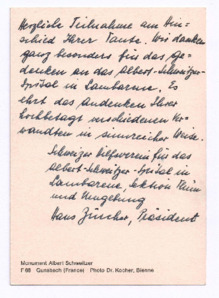 Herzliche Teilnahme am Hin-
schied Ihrer Tante. Wir danken
ganz besonders für das Ge-
denken an das Albert-Schweitzer-
Spital in Lambarene. Es
ehrt das Andenken Ihrer
hochbetagt verschiedenen Ver-
wandten in sinnreicher Weise.
Schweizer Hilfsverein für das
Albert-Schweitzer-Spital in
Lambarene, Sektion Thun
und Umgebung
Hans Zürcher, Präsident
Monument Albert Schweitzer
F 68 Gunsbach (France) Photo Dr. Kocher, Bienne